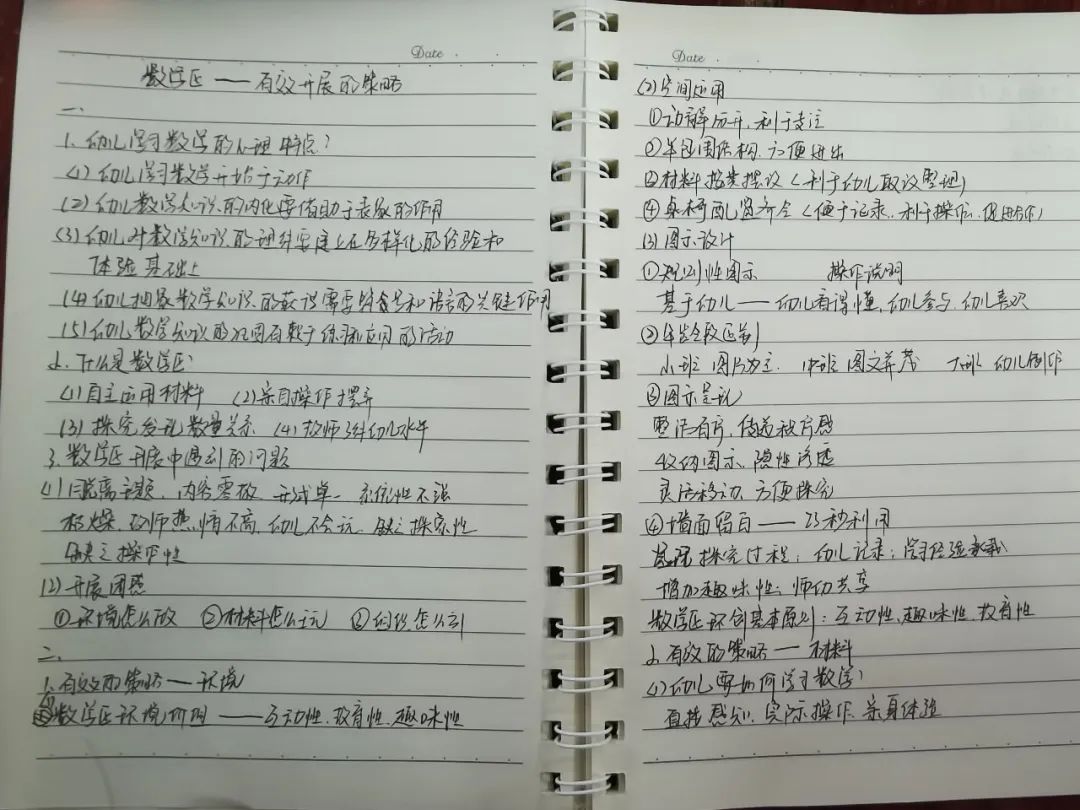 Date
数学区——有效开展的策略
一、
1. 幼儿学习数学的心理特点?
(1) 幼儿学习数学开始于动作
(2) 幼儿数学知识的内化要借助于表象的作用
(3) 幼儿对数学知识的理解要建立在多样化的经验和
体验基础上
(4) 幼儿抽象数学知识的获得需要符号和语言的关键作用
(5) 幼儿数学知识的巩固有赖于练习和应用的活动
2. 什么是数学区?
(1) 自主应用材料 (2) 亲自操作摆弄
(3) 探究发现数量关系 (4) 教师了解幼儿水平
3. 数学区开展中遇到的问题
(1) 脱离主题、内容零散 形式单一 系统性不强
枯燥、教师热情不高、幼儿不会玩、缺乏探索性
缺乏操作性
(2) 开展困惑
①环境怎么做 ②材料怎么玩 ③
二、
1. 有效的策略——环境
数学区环境 ——互动性、教育性、趣味性
Date
(2) 空间应用
①动静分开、利于专注
②半包围结构、方便进出
③材料按类摆放 (利于幼儿取放整理)
④桌椅配置齐全 (便于记录、利于操作、促进合作)
(3) 图示设计
①规则性图示 操作说明
基于幼儿——幼儿看得懂、幼儿参与、幼儿喜欢
②年龄段区别
小班 图片为主、 中班 图文并茂 大班 幼儿制作
③图示呈现
整洁有序、传递秩序感
收纳图示、隐性渗透
灵活移动、方便探究
④墙面留白——巧妙利用
探究过程; 幼儿记录; 学习经验承载
增加趣味性; 师幼共享
数学区环创基本原则: 互动性、趣味性、教育性
2. 有效的策略——材料
(1) 幼儿要如何学习数学?
直接感知、实际操作、亲身体验